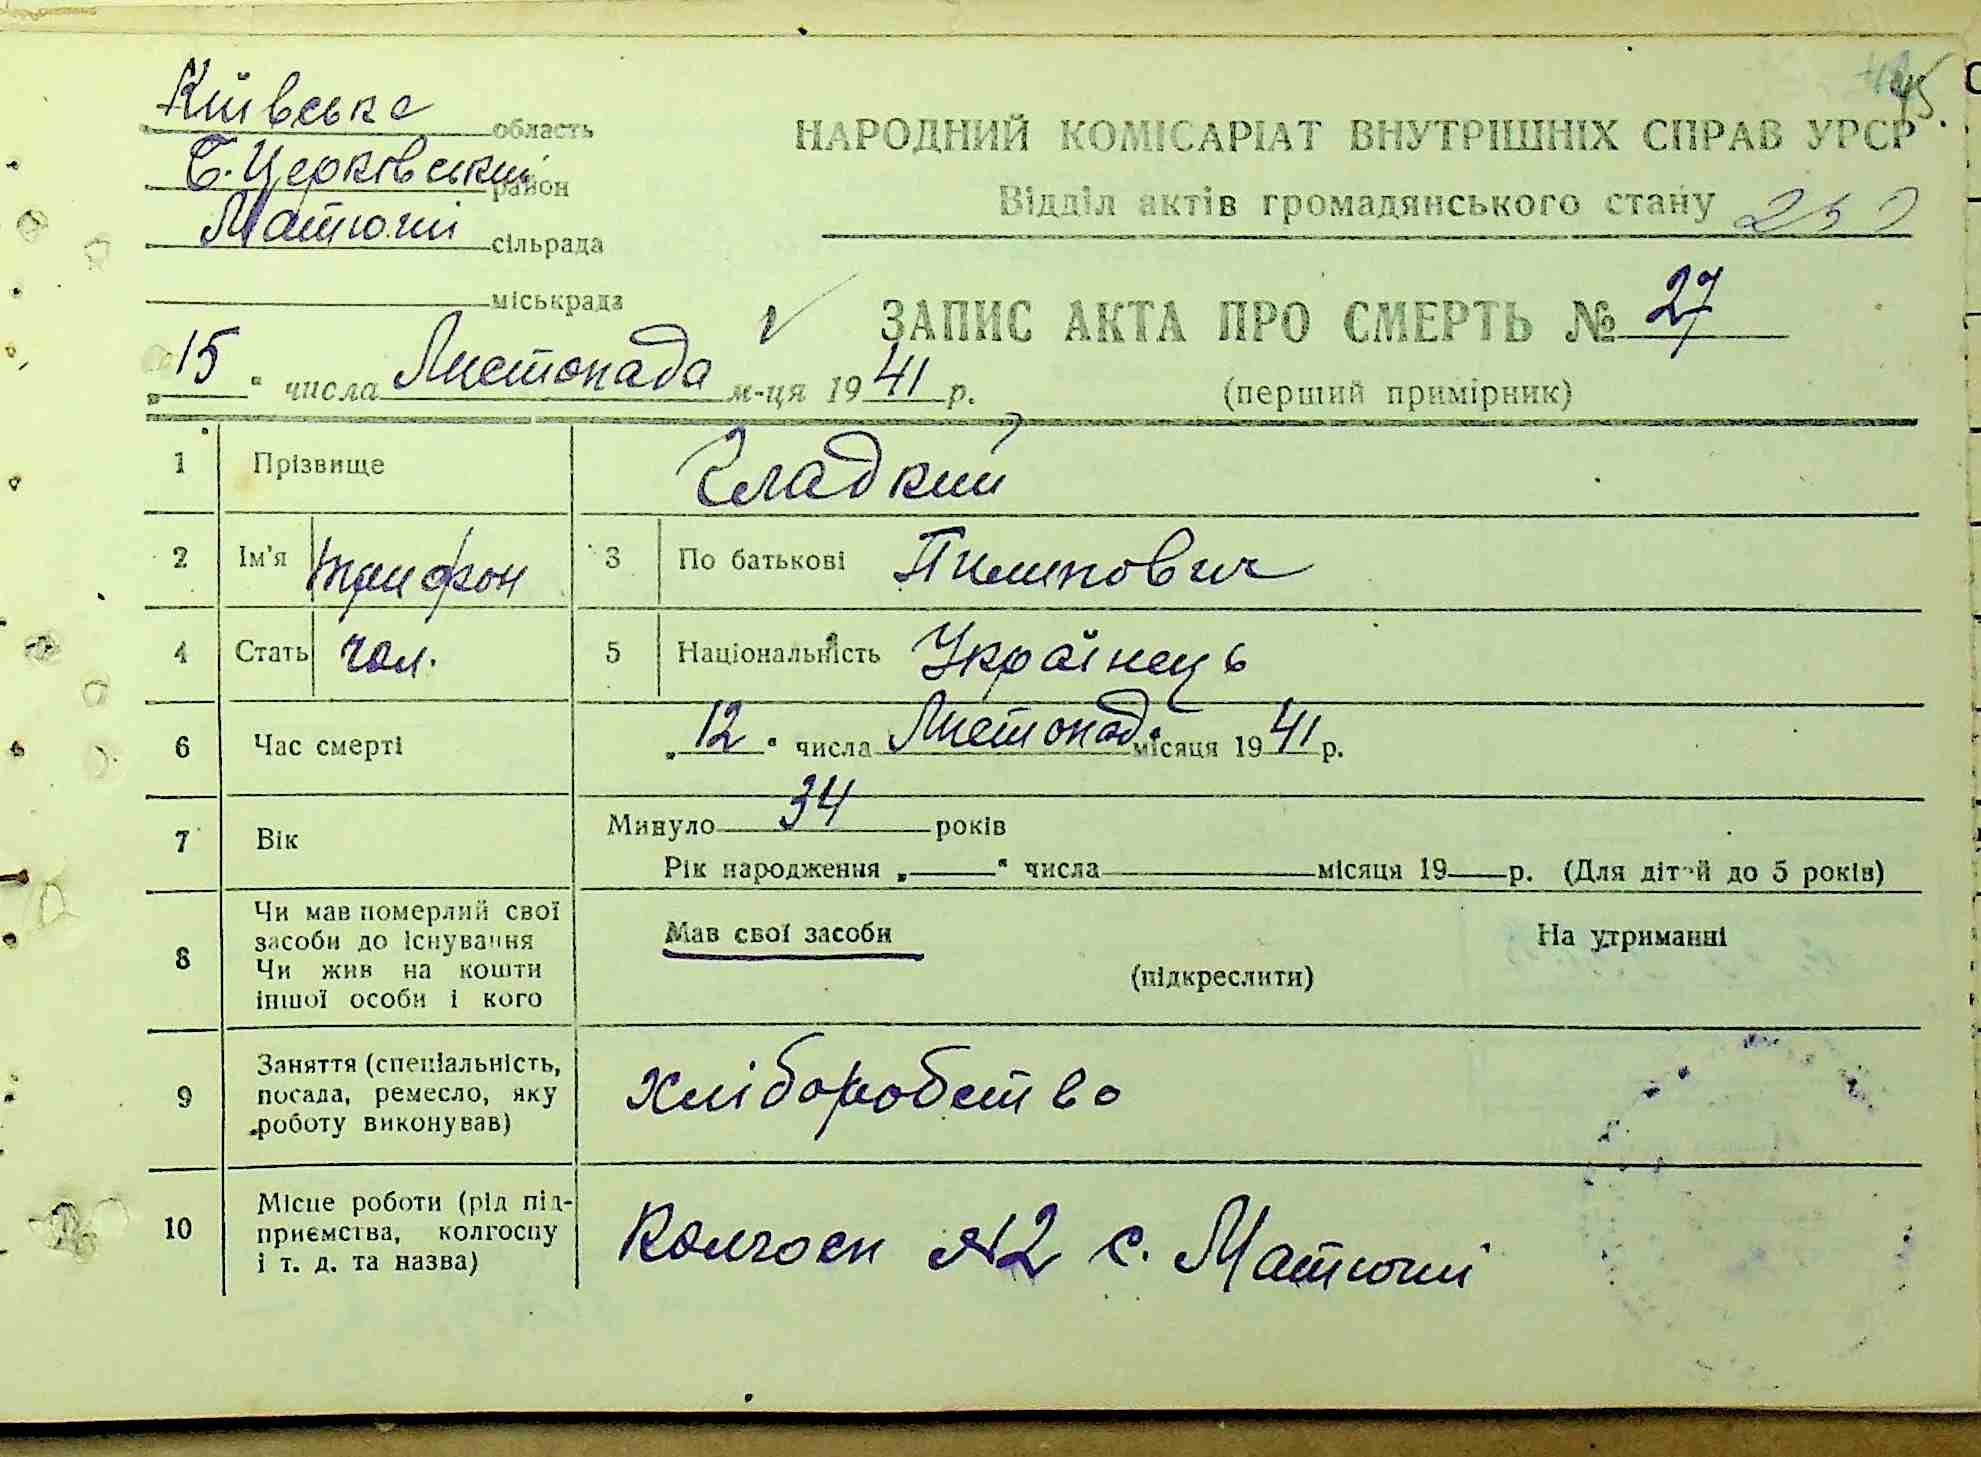 Київська область
Б. Церківський район
Матюші сільрада
міськрада
НАРОДНИЙ КОМІСАРІАТ ВНУТРІШНІХ СПРАВ УРСР
Відділ актів громадянського стану
ЗАПИС АКТА ПРО СМЕРТЬ № 27
(перший примірник)
„15" числа Листопада м-ця 1941 р.
1 Прізвище Гладкий
2 Ім'я Трифон 3 По батькові Пилипович
4 Стать чол. 5 Національність Українець
6 Час смерті „12" числа Листопад. місяця 1941 р.
7 Вік Минуло 34 років
Рік народження „ " числа місяця 19 р. (Для дітей до 5 років)
8 Чи мав померлий свої
засоби до існування
Чи жив на кошти
іншої особи і кого
Мав свої засоби На утриманні
(підкреслити)
9 Заняття (спеціальність,
посада, ремесло, яку
роботу виконував)
Хліборобство
10 Місце роботи (рід під-
приємства, колгоспу
і т. д. та назва)
Колгосп №2 с. Матюші